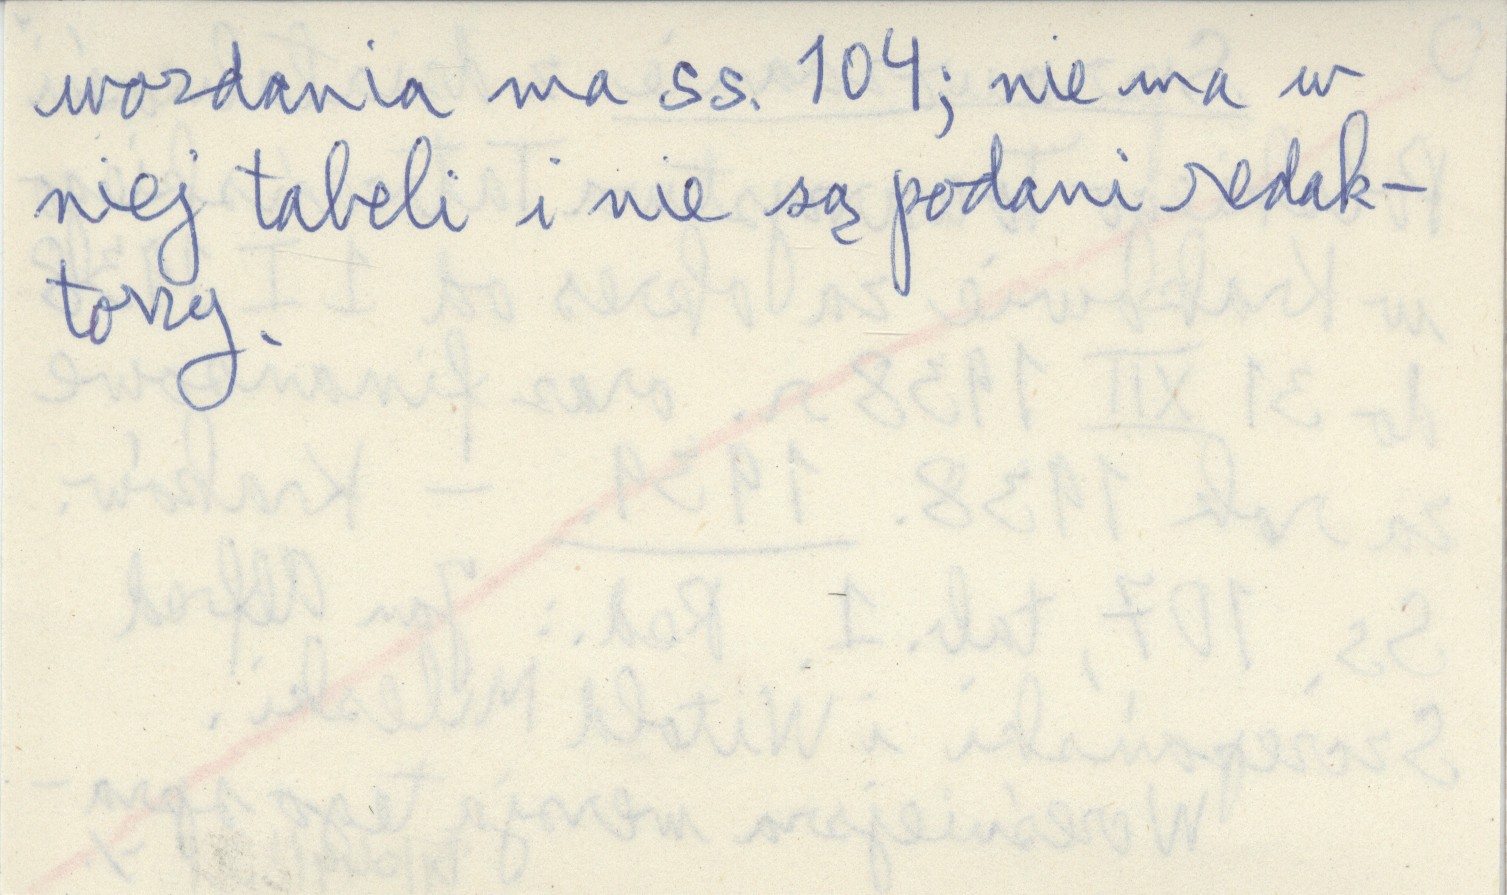 wozdania ma ss. 104; nie ma w
niej tabeli i nie są podani redak-
torzy.